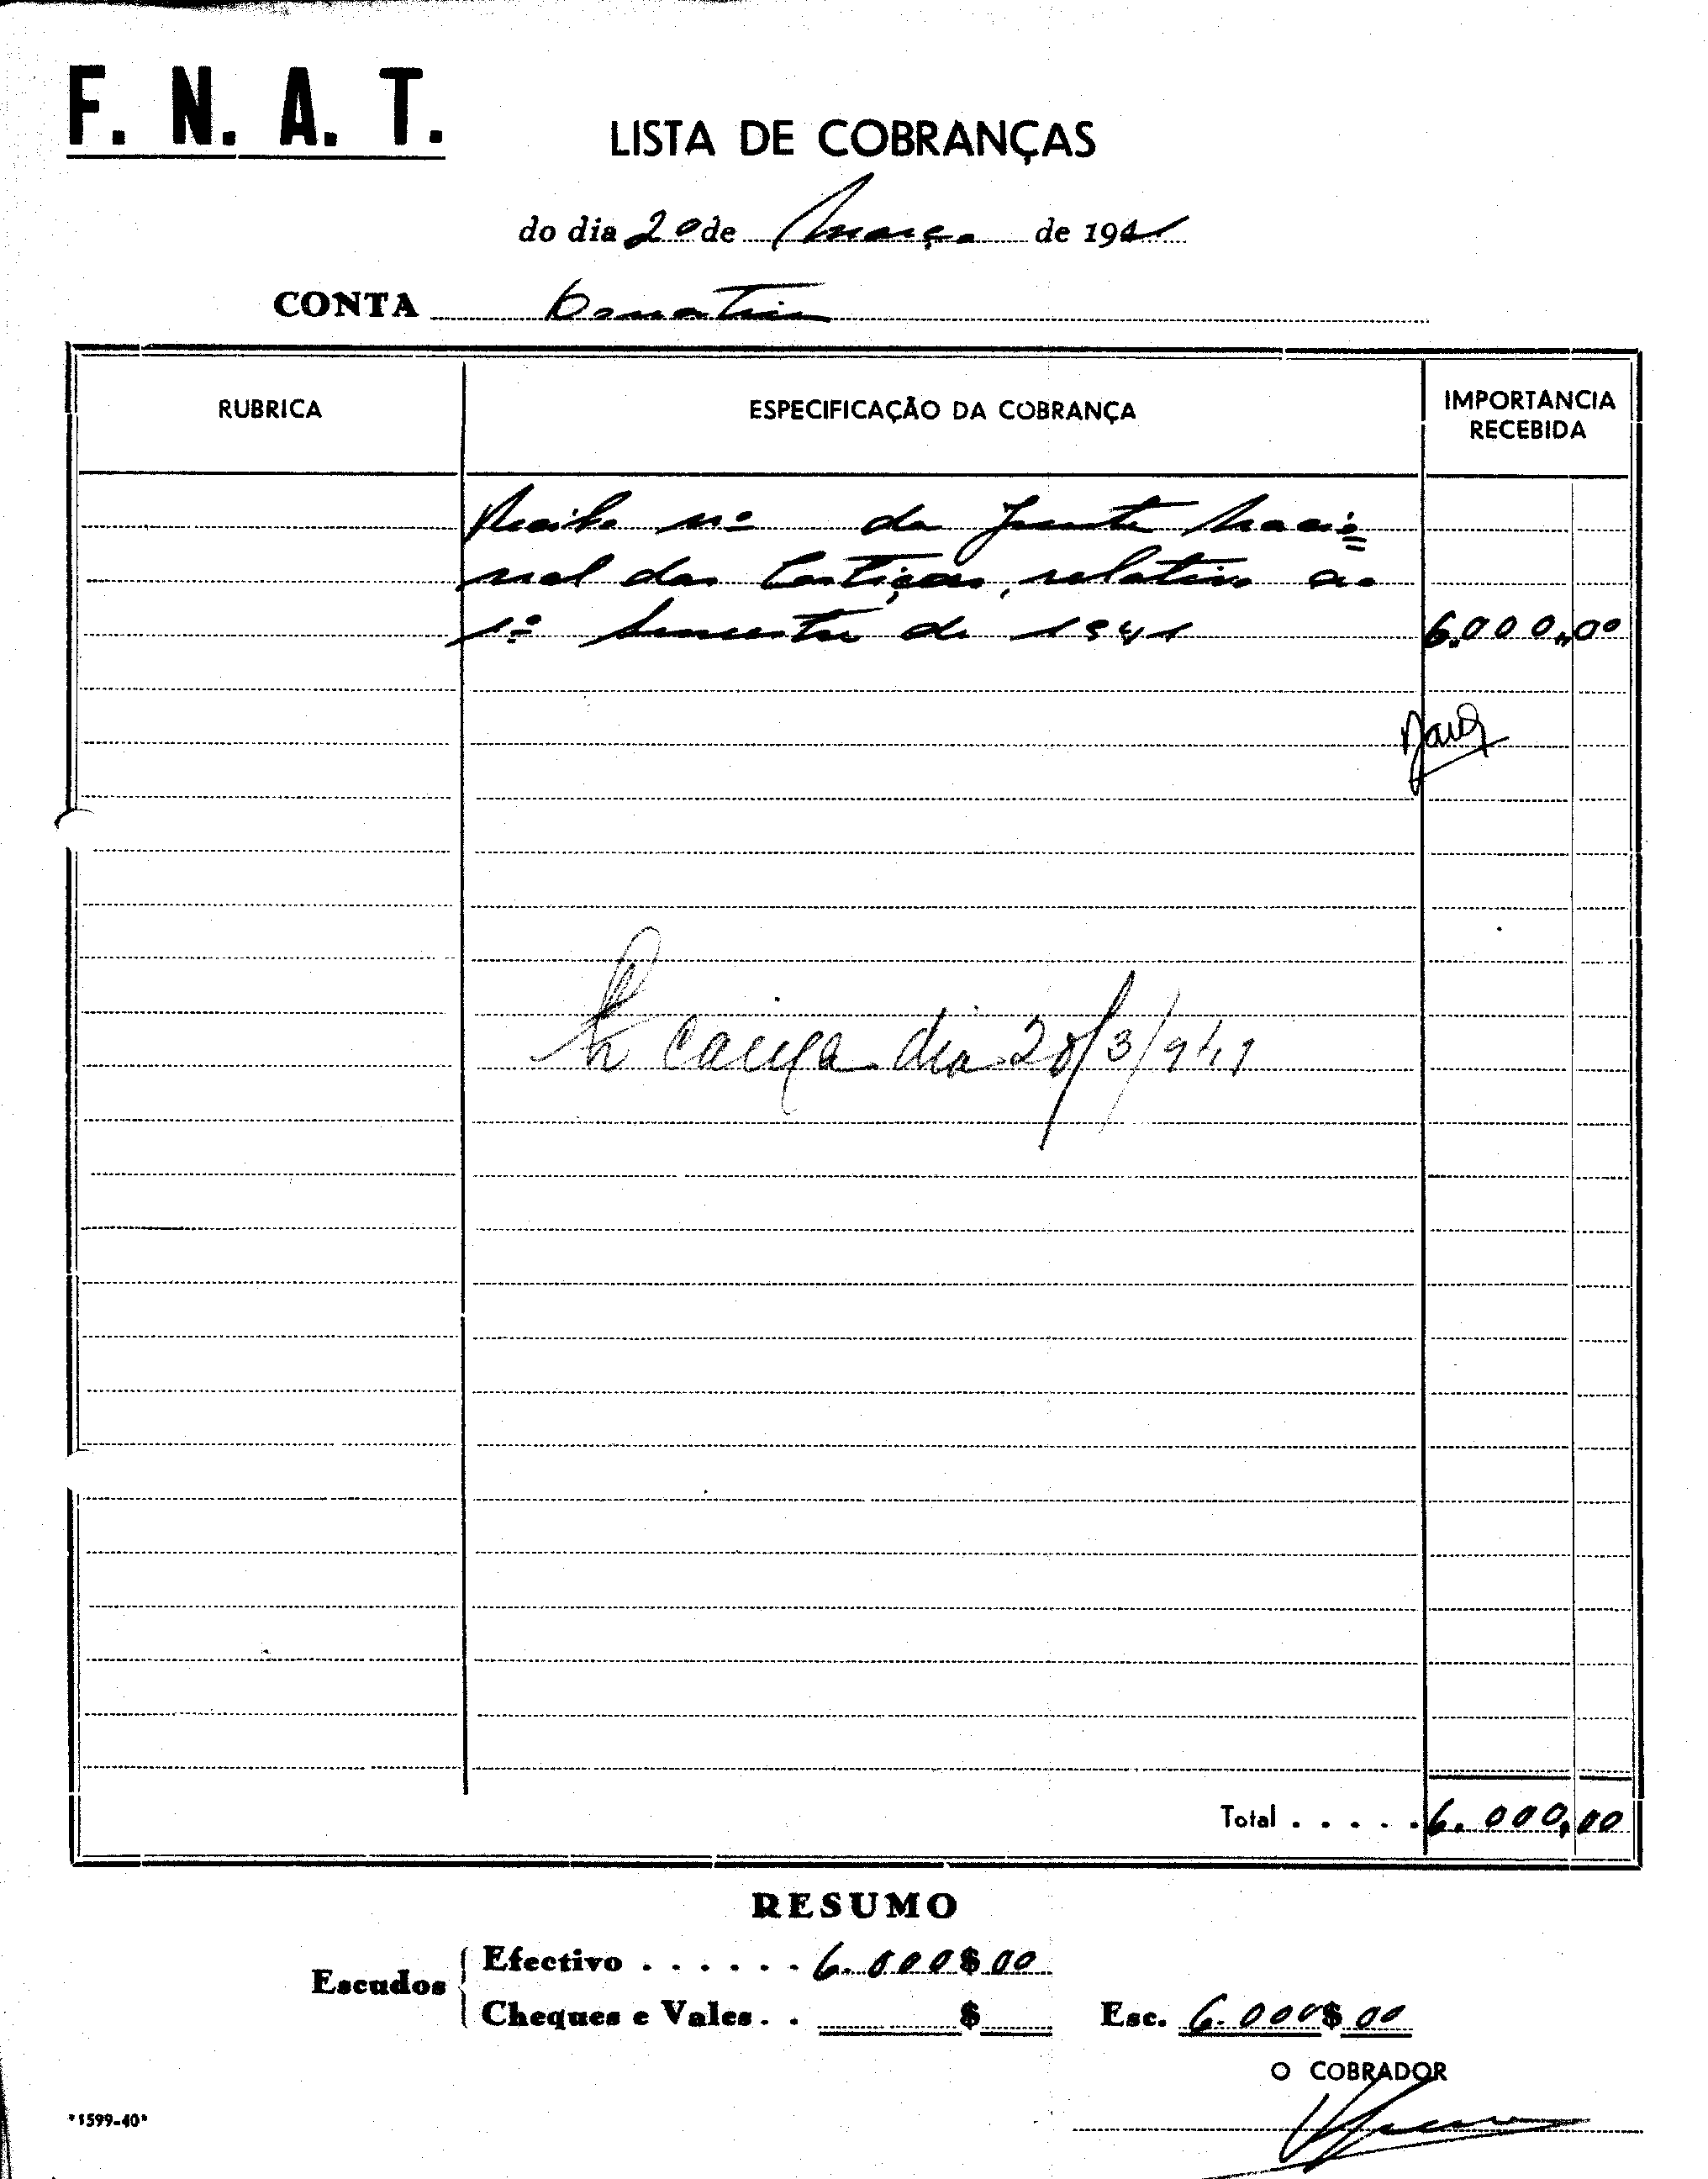 F. N. A. T.
LISTA DE COBRANÇAS
do dia 20 de Março de 1941
CONTA Donativos
RUBRICA ESPECIFICAÇÃO DA COBRANÇA IMPORTANCIA RECEBIDA
Recibo nº da Junta Nacio=
nal das Cortiças, relativo ao
1º Semestre de 1941 6.000,00
caixa dia 20/3/941
Total . . . . . 6.000,00
RESUMO
Escudos
Efectivo . . . . . . 6.000$00
Cheques e Vales . . $
Esc. 6.000$00
O COBRADOR
*1599-40*